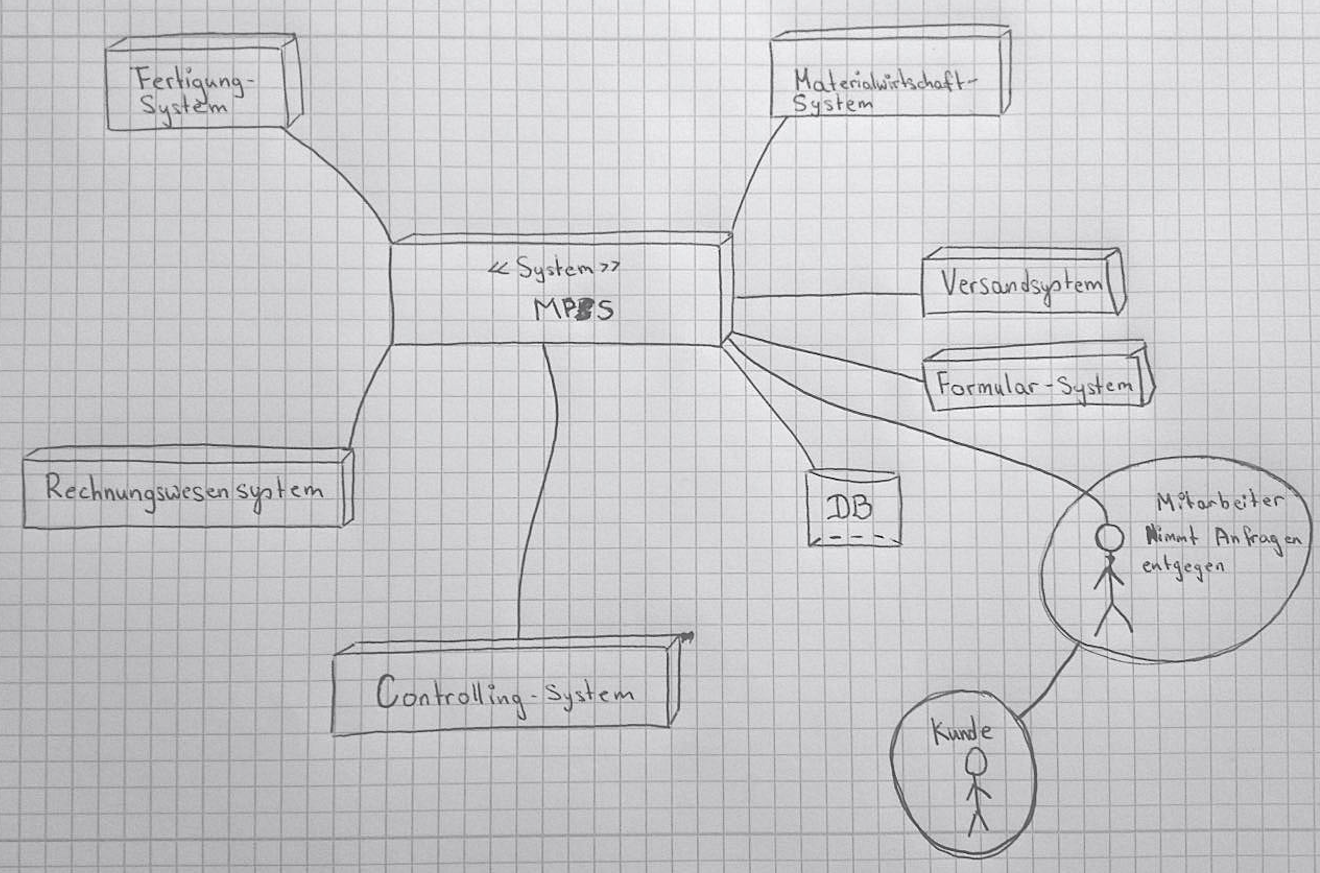 Fertigung-
System
Materialwirtschaft-
System
<< System >>
Versandsystem
Formular-System
Rechnungswesensystem
DB
Mitarbeiter
Nimmt Anfragen
entgegen
Controlling-System
Kunde